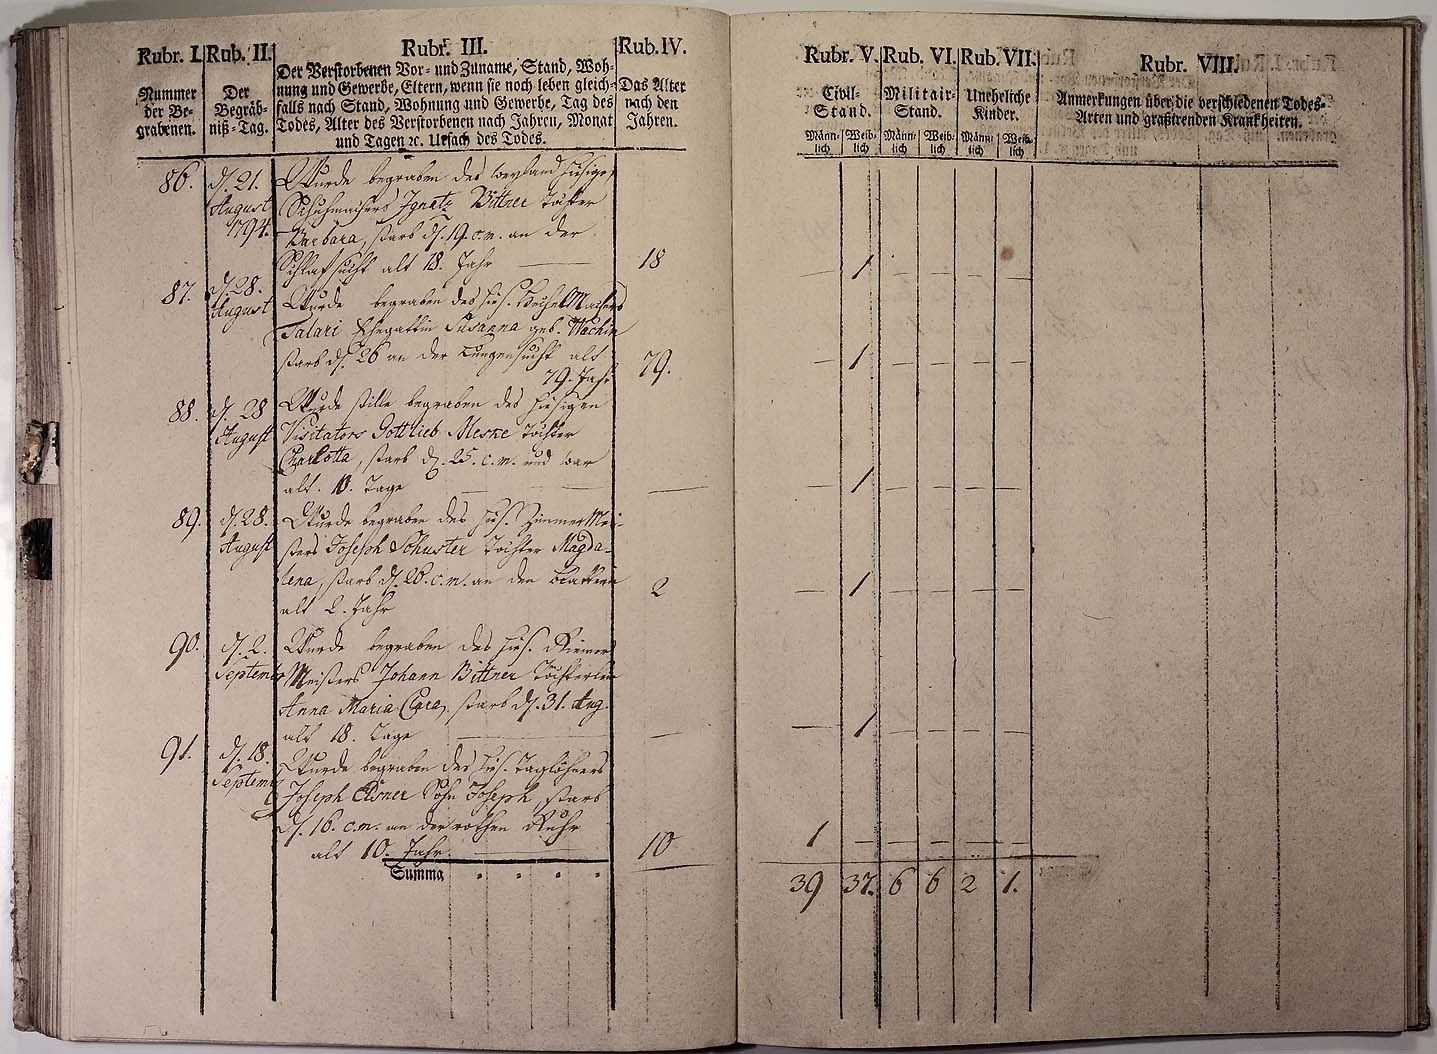 Rubr. I.
Nummer
der Be-
grabenen.
Rub. II.
Der
Begräb-
niß-Tag.
Rubr. III.
Der Verstorbenen Vor- und Zuname, Stand, Woh-
nung und Gewerbe, Eltern, wenn sie noch leben gleich-
falls nach Stand, Wohnung und Gewerbe, Tag des
Todes, Alter des Verstorbenen nach Jahren, Monat
und Tagen ꝛc. Ursach des Todes.
Rub. IV.
Das Alter
nach den
Jahren.
Rubr. V.
Civil-
Stand.
Männ-
lich
Weib-
lich
Rub. VI.
Militair-
Stand.
Männ-
lich
Weib-
lich
Rub. VII.
Uneheliche
Kinder.
Männ-
lich
Weib-
lich
Rubr. VIII.
Anmerkungen über die verschiedenen Todes-
Arten und graßirenden Krankheiten.
86.
d. 21.
August
1794.
Wurde begraben des weyland hiesigen
Schuhmachers Ignatz Bittner Tochter
Barbara, starb d. 19. c. m. an der
Schlafsucht alt 18. Jahr
18
— 1 — — — —
87.
d. 28.
August
Wurde begraben des hies.
Salari Ehegattin Susanna geb. Wachin
starb d. 26 an der Lungensucht alt
79. Jahr
79.
— 1 — — — —
88.
d. 28
August
Wurde stille begraben des hiesigen
Visitators Gottlieb Meske Tochter
Charlotta, starb d. 25. c. m. und war
alt. 10. Tage — —
—
— 1 — — — —
89.
d. 28.
August
Wurde begraben des hies. Zimmer Mei-
sters Joseph Schuster Tochter Magda-
lena, starb d. 26. c. m. an den Blattern
alt 2. Jahr
2
— 1 — — — —
90.
d. 2.
Septemb
Wurde begraben des hies. Riemer
Meisters Johann Bittner Töchterlein
Anna Maria Clara, starb d. 31. Aug.
alt 18. Tage —
—
— 1
91.
d. 18.
Septemb
Wurde begraben des hies. Taglöhners
Joseph Elsner Sohn Joseph, starb
d. 16. c. m. an der rothen Ruhr
alt 10. Jahr.
10
1 — — — — —
Summa
39 37. 6 6 2 1.